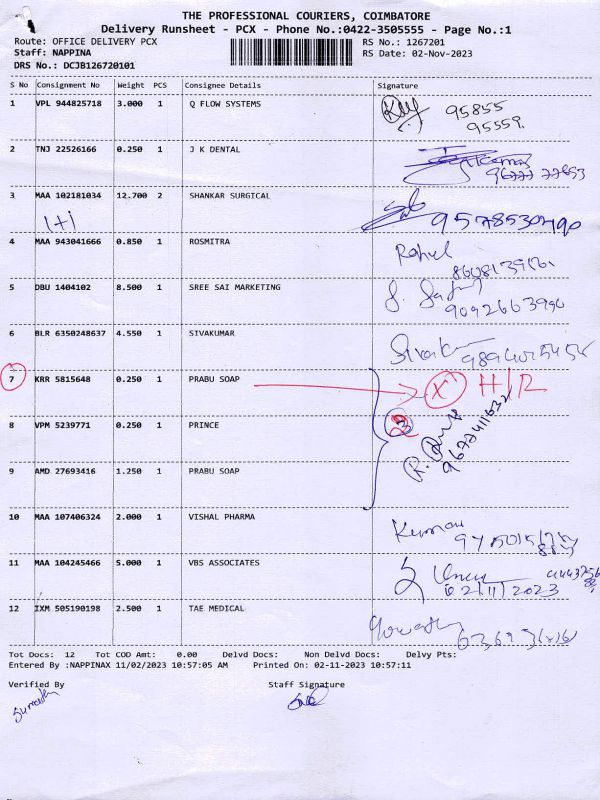 THE PROFESSIONAL COURIERS, COIMBATORE
Delivery Runsheet - PCX - Phone No.:0422-3505555 - Page No.:1
Route: OFFICE DELIVERY PCX RS No.: 1267201
Staff: NAPPINA RS Date: 02-Nov-2023
DRS No.: DCJB126720101
S No Consignment No Weight PCS Consignee Details Signature
1 VPL 944825718 3.000 1 Q FLOW SYSTEMS
95855
95559
2 TNJ 22526166 0.250 1 J K DENTAL
3 MAA 102181034 12.700 2 SHANKAR SURGICAL
1+1
4 MAA 943041666 0.850 1 ROSMITRA
Rahul
5 DBU 1404102 8.500 1 SREE SAI MARKETING
9092663990
6 BLR 6350248637 4.550 1 SIVAKUMAR
7 KRR 5815648 0.250 1 PRABU SOAP X H/R
8 VPM 5239771 0.250 1 PRINCE
9677411632
9 AMD 27693416 1.250 1 PRABU SOAP
10 MAA 107406324 2.000 1 VISHAL PHARMA
Kumar
11 MAA 104245466 5.000 1 VBS ASSOCIATES
02/11/2023
12 IXM 505190198 2.500 1 TAE MEDICAL
Tot Docs: 12 Tot COD Amt: 0.00 Delvd Docs: Non Delvd Docs: Delvy Pts:
Entered By :NAPPINAX 11/02/2023 10:57:05 AM Printed On: 02-11-2023 10:57:11
Verified By Staff Signature